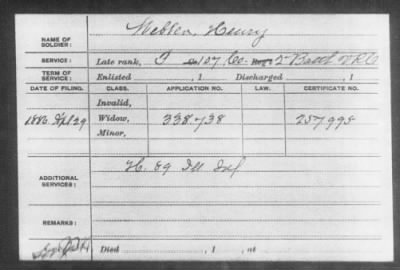 NAME OF SOLDIER: Webber, Henry
SERVICE: Late rank, P 107, Co. Reg't 2 Batt V R C
TERM OF SERVICE: Enlisted , 1 Discharged , 1
DATE OF FILING. CLASS. APPLICATION NO. LAW. CERTIFICATE NO.
Invalid,
1886 Apl 29 Widow, 338738 257998
Minor,
ADDITIONAL SERVICES: H. 89 Ill Inf
REMARKS:
Died , 1 , at